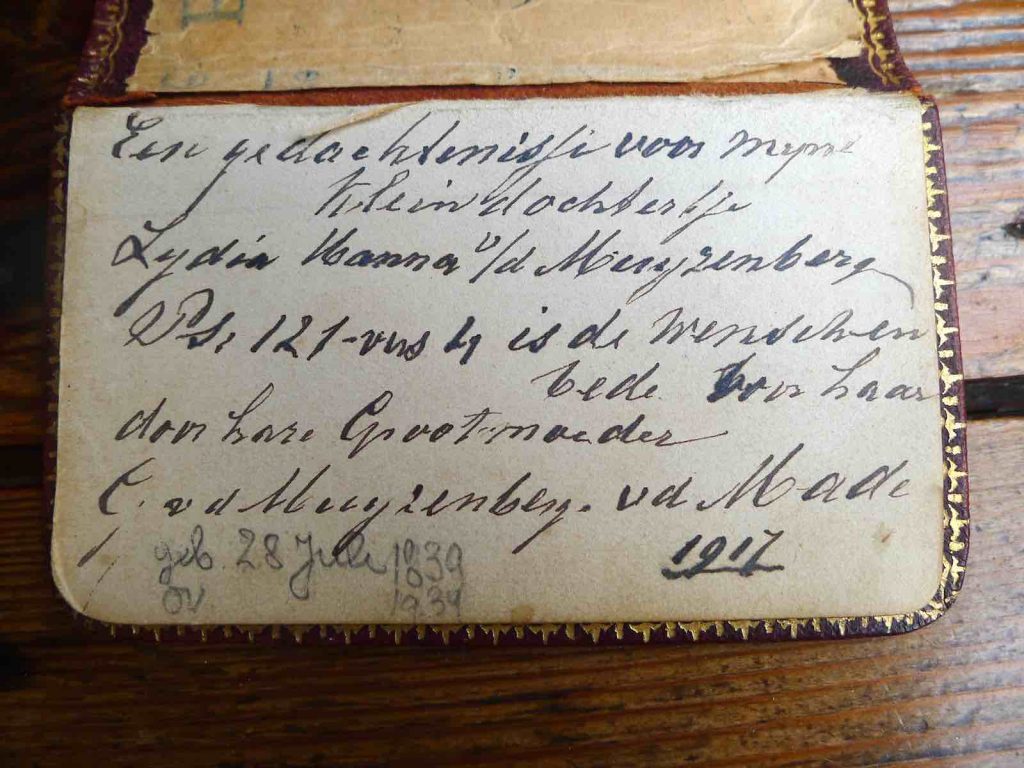 Een gedachtenisje voor myne
kleindochtertje
Lydia Hanna v/d Muyzenberg
Ps. 121-vers 4 is de wenschen
bede voor haar
door hare Grootmoeder
C. v d Muyzenberg. vd Made
1917
geb. 28 Juli 1839
ov 1934